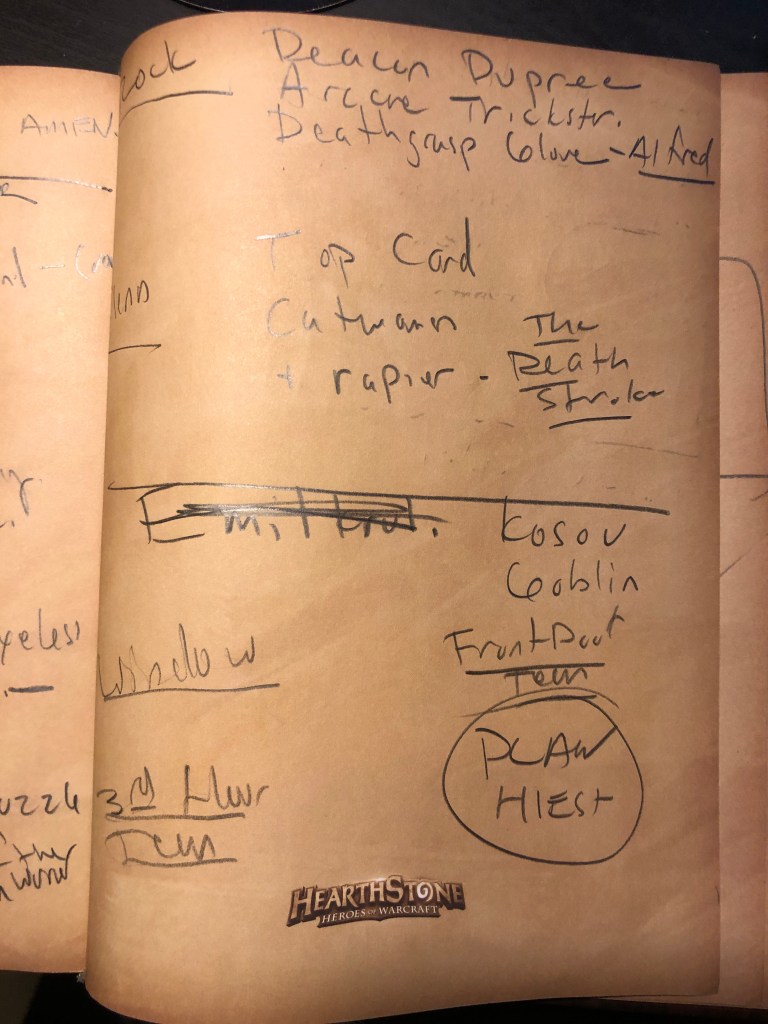 AMEN.
cock
Deacon Dupree
Arcane Trickstr.
Deathgrasp Glove - Alfred
Top Card
Catmann
+ rapier - The
Death
Stroke
Kosov
Goblin
Front Doot
Team
Window
3rd Floor
Team
PLAN
HIEST
HEARTHSTONE
HEROES OF WARCRAFT